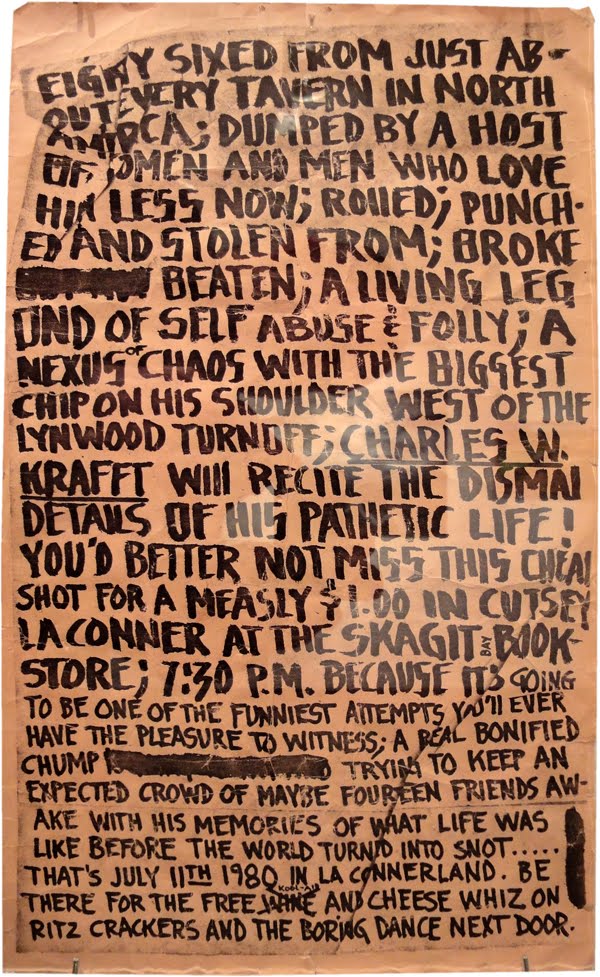 EIGHTY SIXED FROM JUST AB-
OUT EVERY TAVERN IN NORTH
AMERCA; DUMPED BY A HOST
OF WOMEN AND MEN WHO LOVE
HIM LESS NOW; ROLLED; PUNCH-
ED AND STOLEN FROM; BROKE
BEATEN; A LIVING LEG
END OF SELF ABUSE & FOLLY; A
NEXUS OF CHAOS WITH THE BIGGEST
CHIP ON HIS SHOULDER WEST OF THE
LYNWOOD TURNOFF; CHARLES W.
KRAFFT WILL RECITE THE DISMAL
DETAILS OF HIS PATHETIC LIFE!
YOU'D BETTER NOT MISS THIS CHEAP
SHOT FOR A MEASLY $1.00 IN CUTSEY
LA CONNER AT THE SKAGIT BAY BOOK-
STORE; 7:30 P.M. BECAUSE IT'S GOING
TO BE ONE OF THE FUNNIEST ATTEMPTS YOU'LL EVER
HAVE THE PLEASURE TO WITNESS; A REAL BONIFIED
CHUMP TRYING TO KEEP AN
EXPECTED CROWD OF MAYBE FOURTEEN FRIENDS AW-
AKE WITH HIS MEMORIES OF WHAT LIFE WAS
LIKE BEFORE THE WORLD TURN'D INTO SNOT.....
THAT'S JULY 11TH 1980 IN LA CONNERLAND. BE
THERE FOR THE FREE KOOL-AID WINE AND CHEESE WHIZ ON
RITZ CRACKERS AND THE BORING DANCE NEXT DOOR.